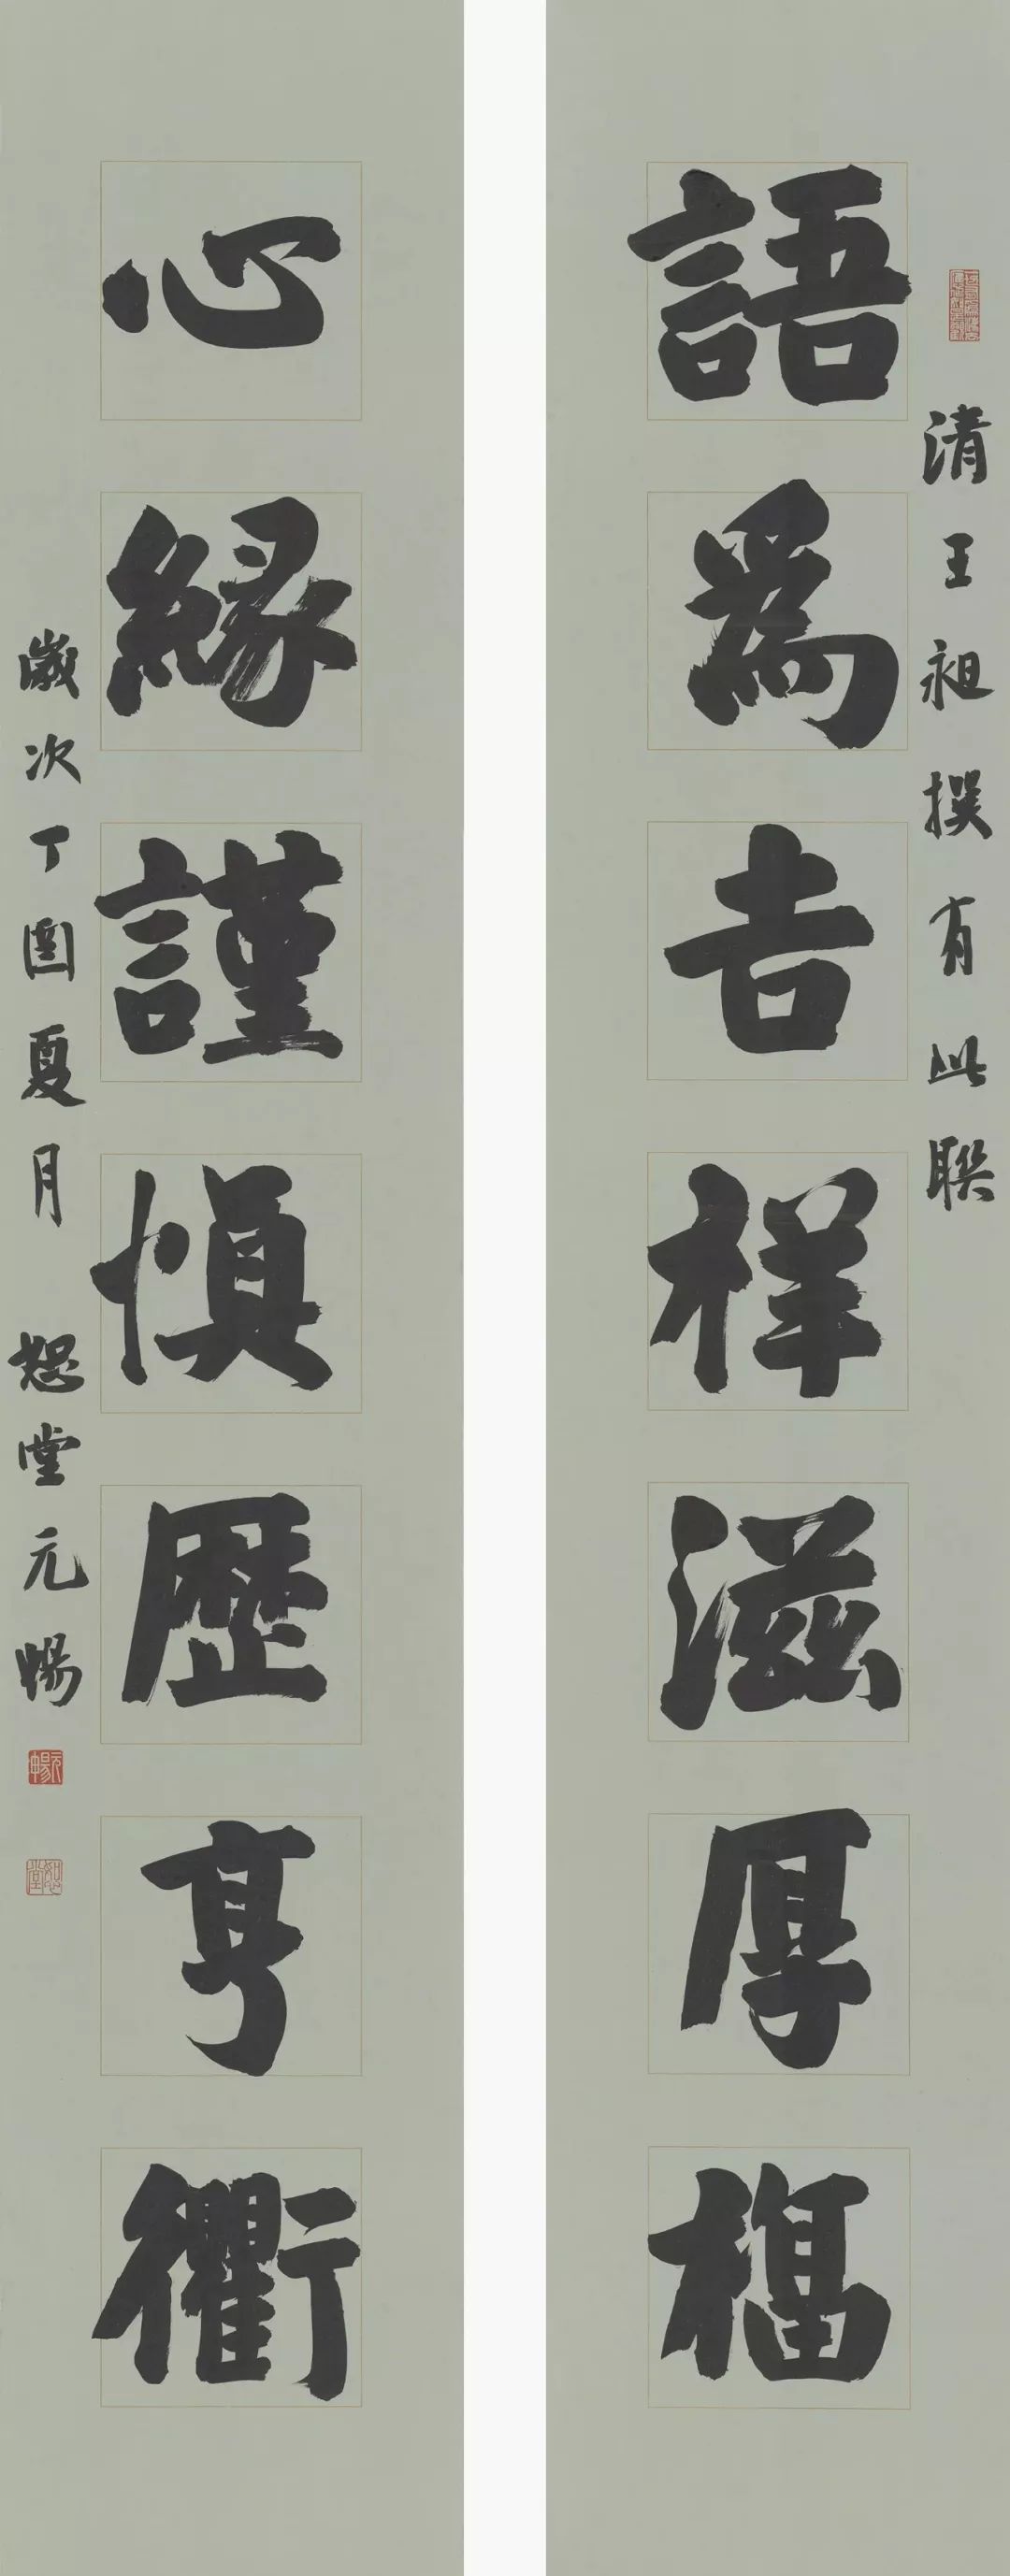 清王昶撰有此聯
語爲吉祥滋厚福
心緣謹慎歷亨衢
歲次丁 夏月 恕堂元暢
元暢